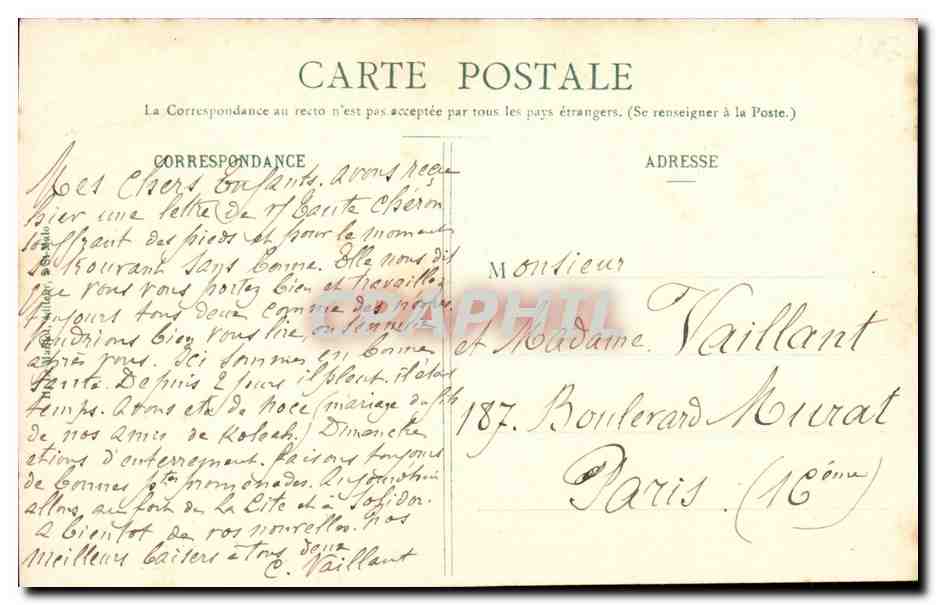 CARTE POSTALE
La Correspondance au recto n'est pas acceptée par tous les pays étrangers. (Se renseigner à la Poste.)
CORRESPONDANCE
Mes Chers Enfants. avons reçue
hier une lettre de v/ Tante Chéron
souffrant des pieds et pour le moment
se trouvant sans bonne. Elle nous dit
que vous vous portez bien et travaillez
toujours tous deux comme des nègres.
Voudrions bien vous lire, on s'ennuie
après vous. Ici sommes en bonne
santé. Depuis 2 jours il pleut. il était
temps. avons été de noce (mariage du fils
de nos amis de) Dimanche
étions d'enterrement. faisons toujours
de bonnes ptes promenades. Aujourd'hui
allons au fort de la Cité et à Solidor.
A bientot de vos nouvelles. nos
meilleurs baisers à tous deux
C. Vaillant
ADRESSE
Monsieur
et Madame Vaillant
187. Boulevard Murat
Paris (16ème)
éditeur, St-Malo
CRAPHIL